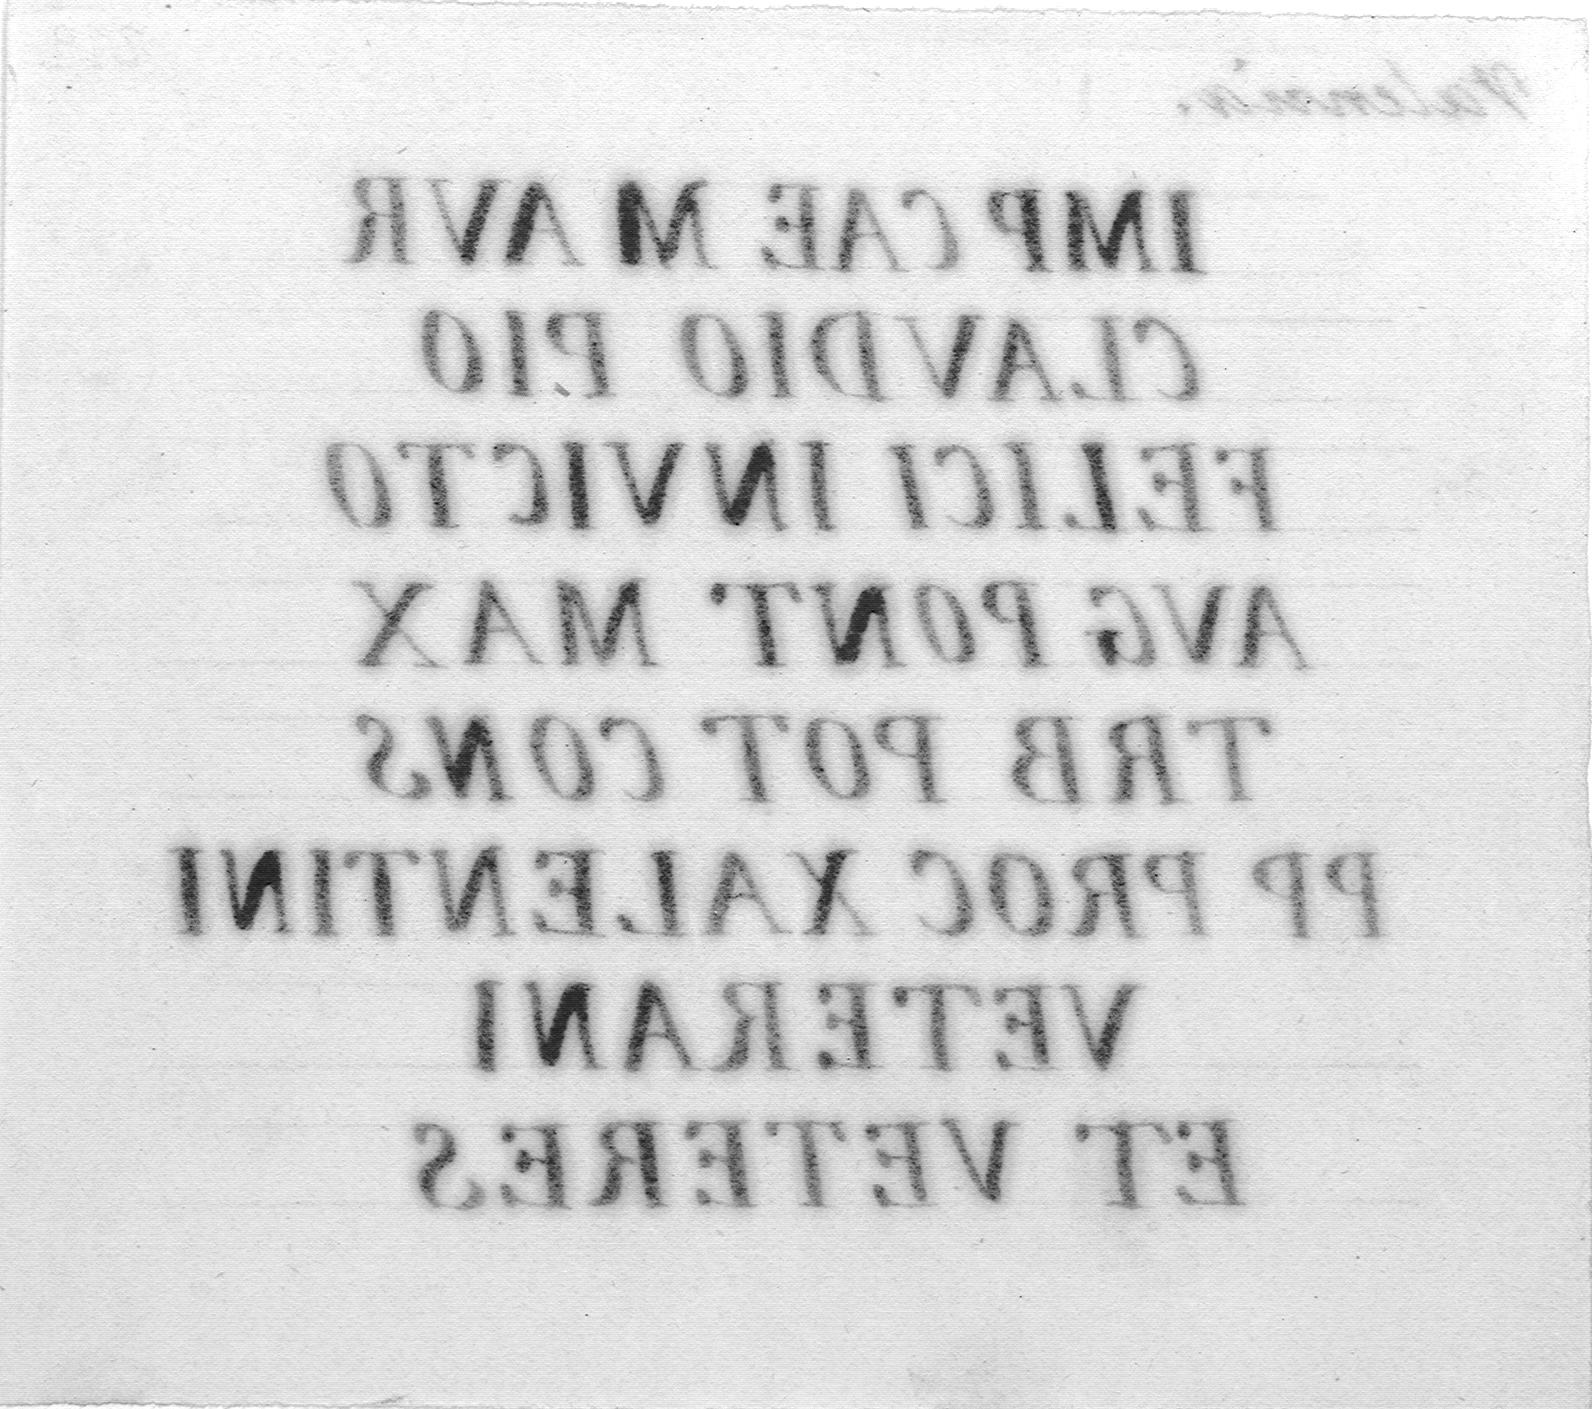 IMP CAE M AVR
CLAVDIO PIO
FELICI INVICTO
AVG PONT MAX
TRB POT CONS
PP PROC XALENTINI
VETERANI
ET VETERES